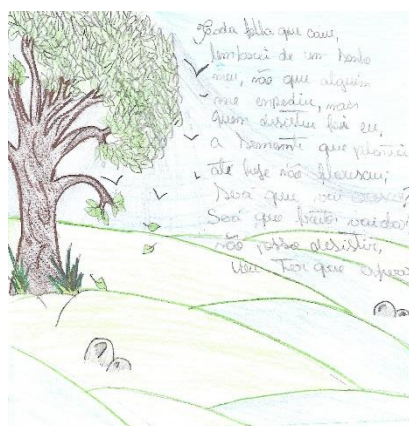 Toda folha que caiu,
lembrarei de um sonho
meu, não que alguém
me impediu, mas
quem desistiu foi eu,
a semente que plantei
até hoje não floresceu;
Será que vai crescer?
Será que
não posso desistir,
vou ter que esperar